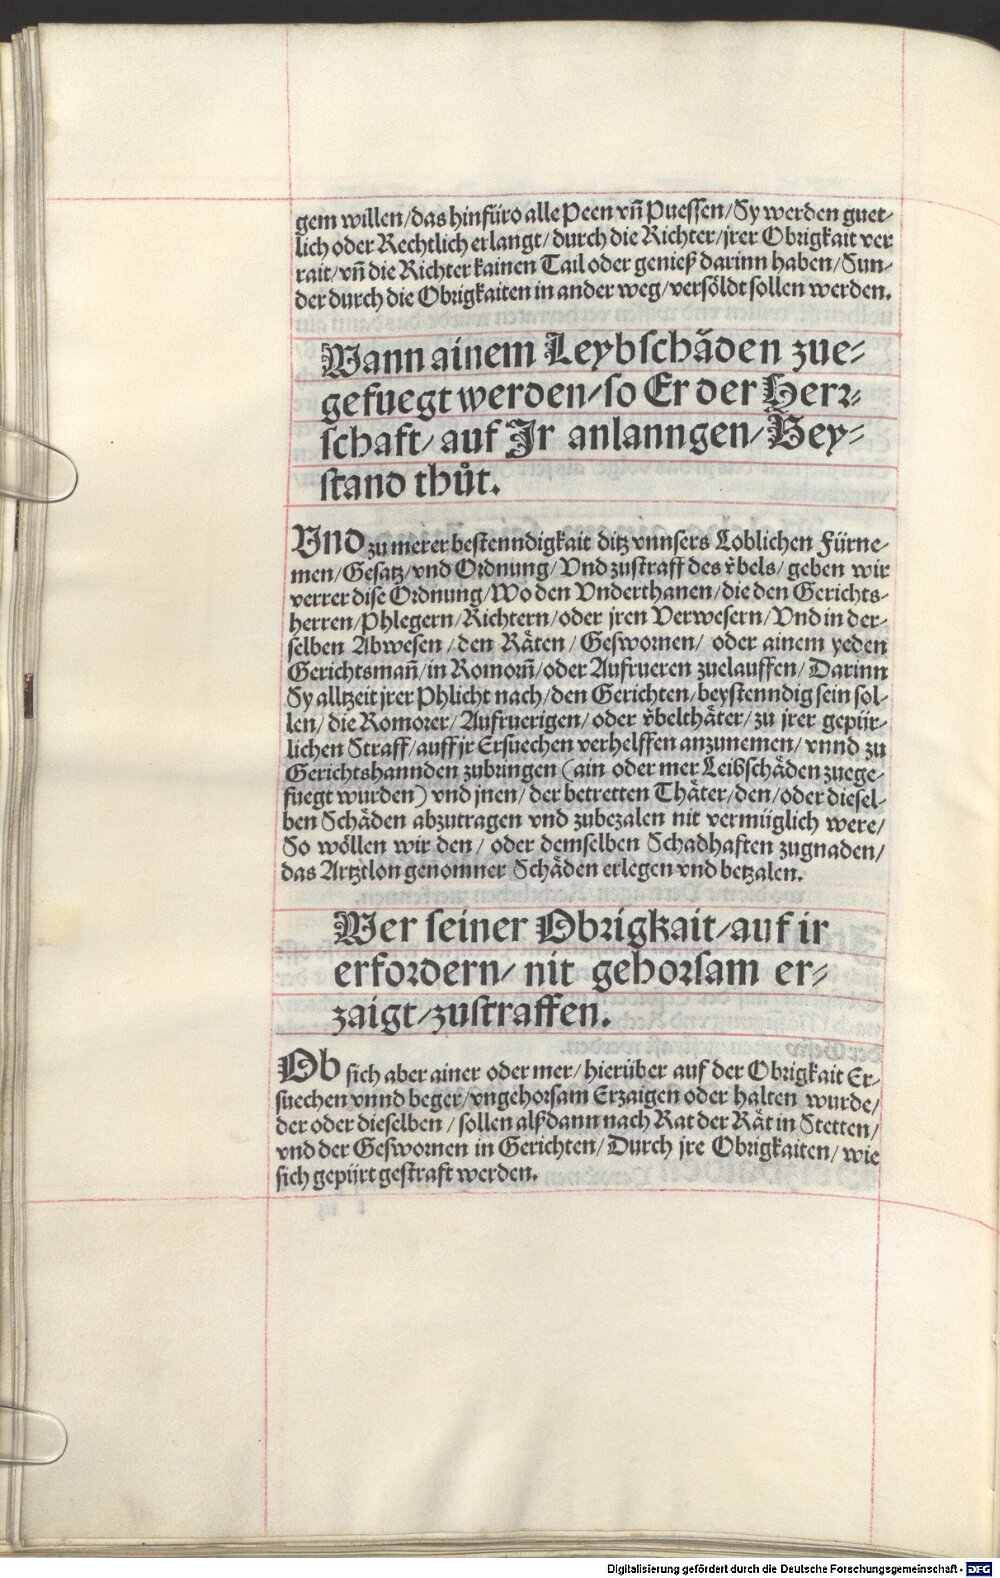 gem willen/das hinfüro alle Peen vñ Puessen/Sy werden guet-
lich oder Rechtlich erlangt/durch die Richter/jrer Obrigkait ver
rait/vñ die Richter kainen Tail oder genieß darinn haben/Sun-
der durch die Obrigkaiten in ander weg/versöldt sollen werden.
Wann ainem Leybschäden zue-
gefuegt werden/so Er der Herr-
schaft/auf Jr anlanngen/Bey-
stand thůt.
Vnd zu merer bestenndigkait ditz vnnsers Loblichen Fürne-
men/Gesatz/vnd Ordnung/Vnd zustraff des v̈bels/geben wir
verrer dise Ordnung/Wo den Vnderthanen/die den Gerichts-
herren/Phlegern/Richtern/oder jren Verwesern/Vnd in der-
selben Abwesen/den Räten/Geswornen/oder ainem yeden
Gerichtsmañ/in Romorñ/oder Aufrueren zuelauffen/Darinn
Sy alltzeit jrer Phlicht nach/den Gerichten/beystenndig sein sol-
len/die Romorer/Aufruerigen/oder v̈belthäter/zu jrer gepür-
lichen Straff/auff jr Ersuechen verhelffen anzunemen/vnnd zu
Gerichtshannden zubringen (ain oder mer Leibschäden zuege-
fuegt wurden) vnd jnen/der betretten Thäter/den/oder diesel-
ben Schäden abzutragen vnd zubezalen nit vermüglich were/
So wöllen wir den/oder demselben Schadhaften zugnaden/
das Artztlon genomner Schäden erlegen vnd betzalen.
Wer seiner Obrigkait/auf ir
erfordern/nit gehorsam er-
zaigt/zustraffen.
Ob sich aber ainer oder mer/hierüber auf der Obrigkait Er-
suechen vnnd beger/vngehorsam Erzaigen oder halten wurde/
der oder dieselben/sollen alßdann nach Rat der Rät in Stetten/
vnd der Geswornen in Gerichten/Durch jre Obrigkaiten/wie
sich gepürt gestraft werden.
Digitalisierung gefördert durch die Deutsche Forschungsgemeinschaft - DFG